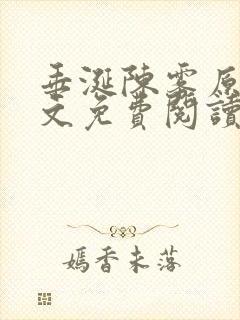 垂涎陳雾原
文免費閱讀
嫣香未落